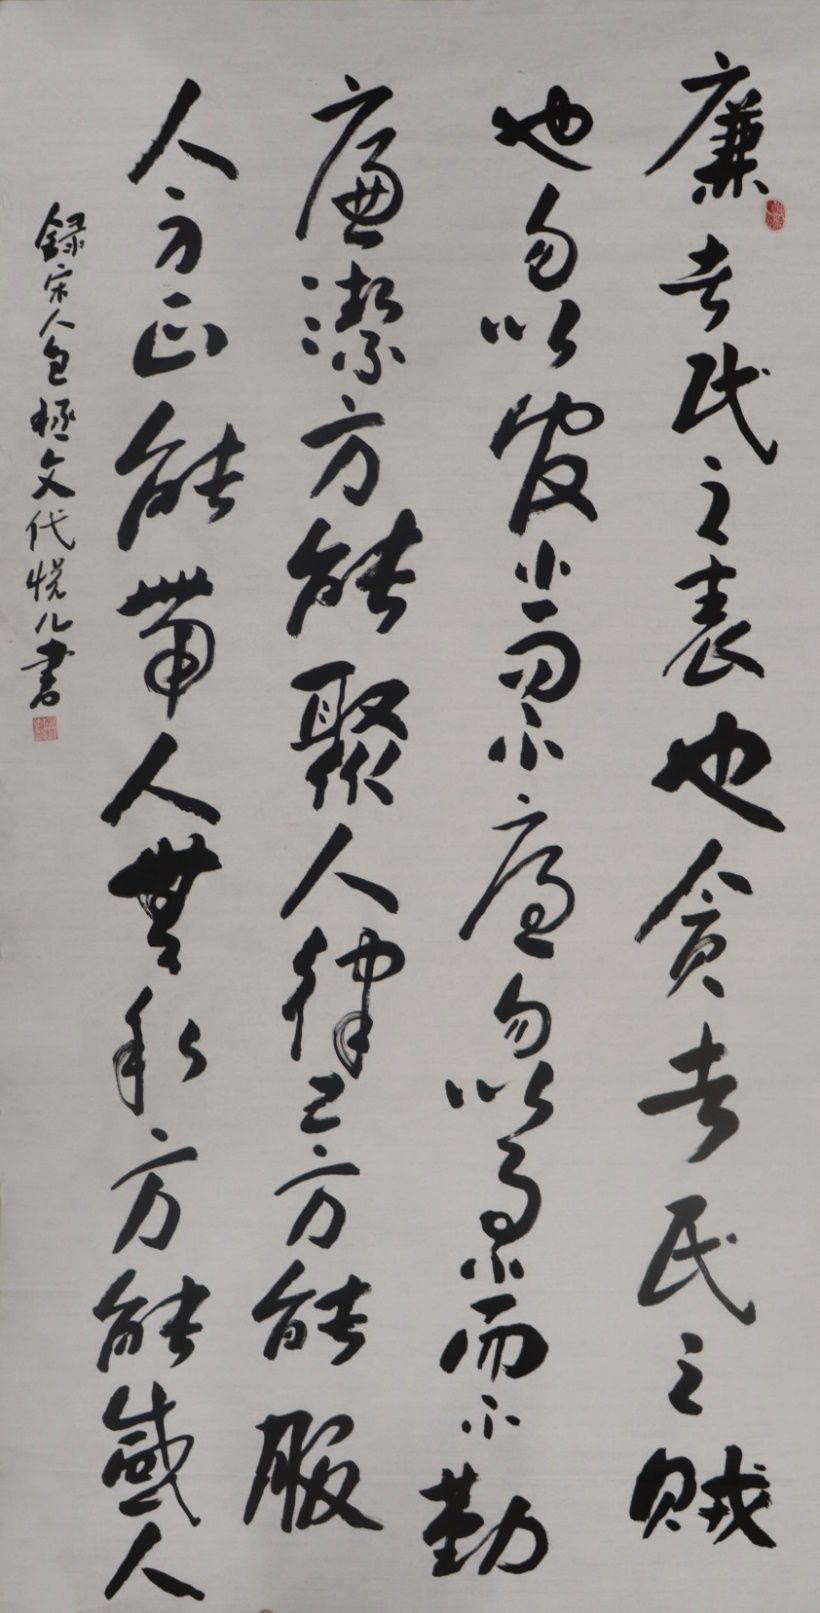 廉者民之表也貪者民之賊
也勿以官小而不廉勿以事小而不勤
廉潔方能聚人律己方能服
人方正能帶人無私方能感人
錄宋人包拯文代悅書